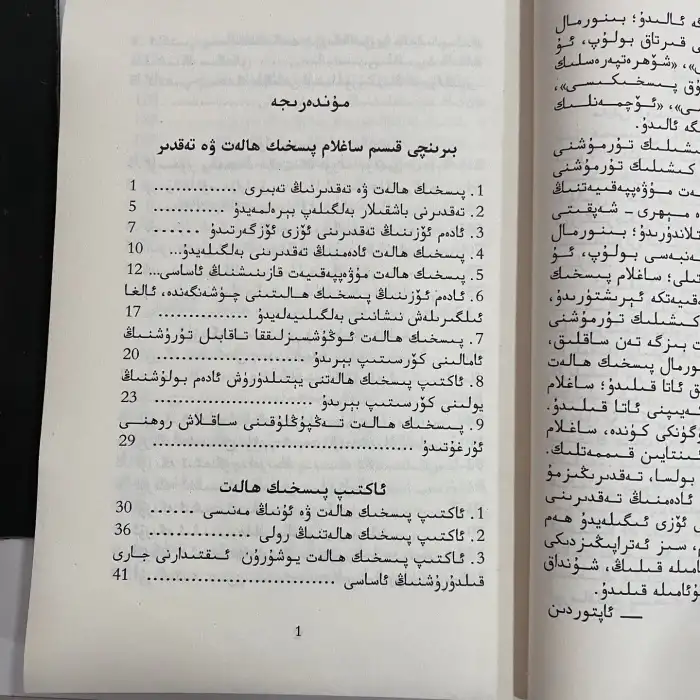 مۇندەرىجە
بىرىنچى قىسىم ساغلام پىسخىك ھالەت ۋە تەقدىر
1. پىسخىك ھالەت ۋە تەقدىرنىڭ تەبىرى ............ 1
2. تەقدىرنى باشقىلار بەلگىلەپ بېرەلمەيدۇ ............ 5
3. ئادەم ئۆزىنىڭ تەقدىرىنى ئۆزى ئۆزگەرتىدۇ ...... 7
4. پىسخىك ھالەت ئادەمنىڭ تەقدىرىنى بەلگىلەيدۇ... 10
5. پىسخىك ھالەت مۇۋەپپەقىيەت قازىنىشنىڭ ئاساسى... 12
6. ئادەم ئۆزىنىڭ پىسخىك ھالىتىنى چۈشەنگەندە، ئالغا
ئىلگىرىلەش نىشانىنى بەلگىلىيەلەيدۇ ............ 17
7. پىسخىك ھالەت ئوڭۇشسىزلىققا تاقابىل تۇرۇشنىڭ
ئامالىنى كۆرسىتىپ بېرىدۇ .................. 20
8. ئاكتىپ پىسخىك ھالەتنى يېتىلدۈرۈش ئادەم بولۇشنىڭ
يولىنى كۆرسىتىپ بېرىدۇ .................. 23
9. پىسخىك ھالەت تەڭپۇڭلۇقىنى ساقلاش روھنى
ئۇرغۇتىدۇ .............................. 29
ئاكتىپ پىسخىك ھالەت
1. ئاكتىپ پىسخىك ھالەت ۋە ئۇنىڭ مەنىسى ...... 30
2. ئاكتىپ پىسخىك ھالەتنىڭ رولى .............. 36
3. ئاكتىپ پىسخىك ھالەت يوشۇرۇن ئىقتىدارنى جارى
قىلدۇرۇشنىڭ ئاساسى ........................ 41
1
ە ئالىدۇ؛ بىنورمال
قىرتاق بولۇپ، ئۇ
»، «شۆھرەتپەرەسلىك
پىسخىكىسى»،
»، «ئۆچمەنلىك
گە ئالىدۇ.
كىشىلىك تۇرمۇشنى
كىشىلىك تۇرمۇشنى
ت مۇۋەپپەقىيەتنىڭ
ە مېھرى ـ شەپقىتى
تلاندۇرىدۇ؛ بىنورمال
ەنبەسى بولۇپ، ئۇ
تىلى؛ ساغلام پىسخىك
قىيەتكە ئېرىشتۈرىدۇ،
كىشىلىك تۇرمۇشنى
ت بىزگە تەن ساقلىق،
رمال پىسخىك ھالەت
ق ئاتا قىلىدۇ؛ ساغلام
ەيىپنى ئاتا قىلىدۇ.
گۈنكى كۈندە، ساغلام
ىنتايىن قىممەتلىك.
بولسا، تەقدىرىڭىزمۇ
ئادەمنىڭ تەقدىرىنى
ئۆزى ئىگىلەيدۇ ھەم
، سىز ئەتراپىڭىزدىكى
امىلە قىلىڭ، شۇنداق
ۇئامىلە قىلىدۇ.
— ئاپتوردىن